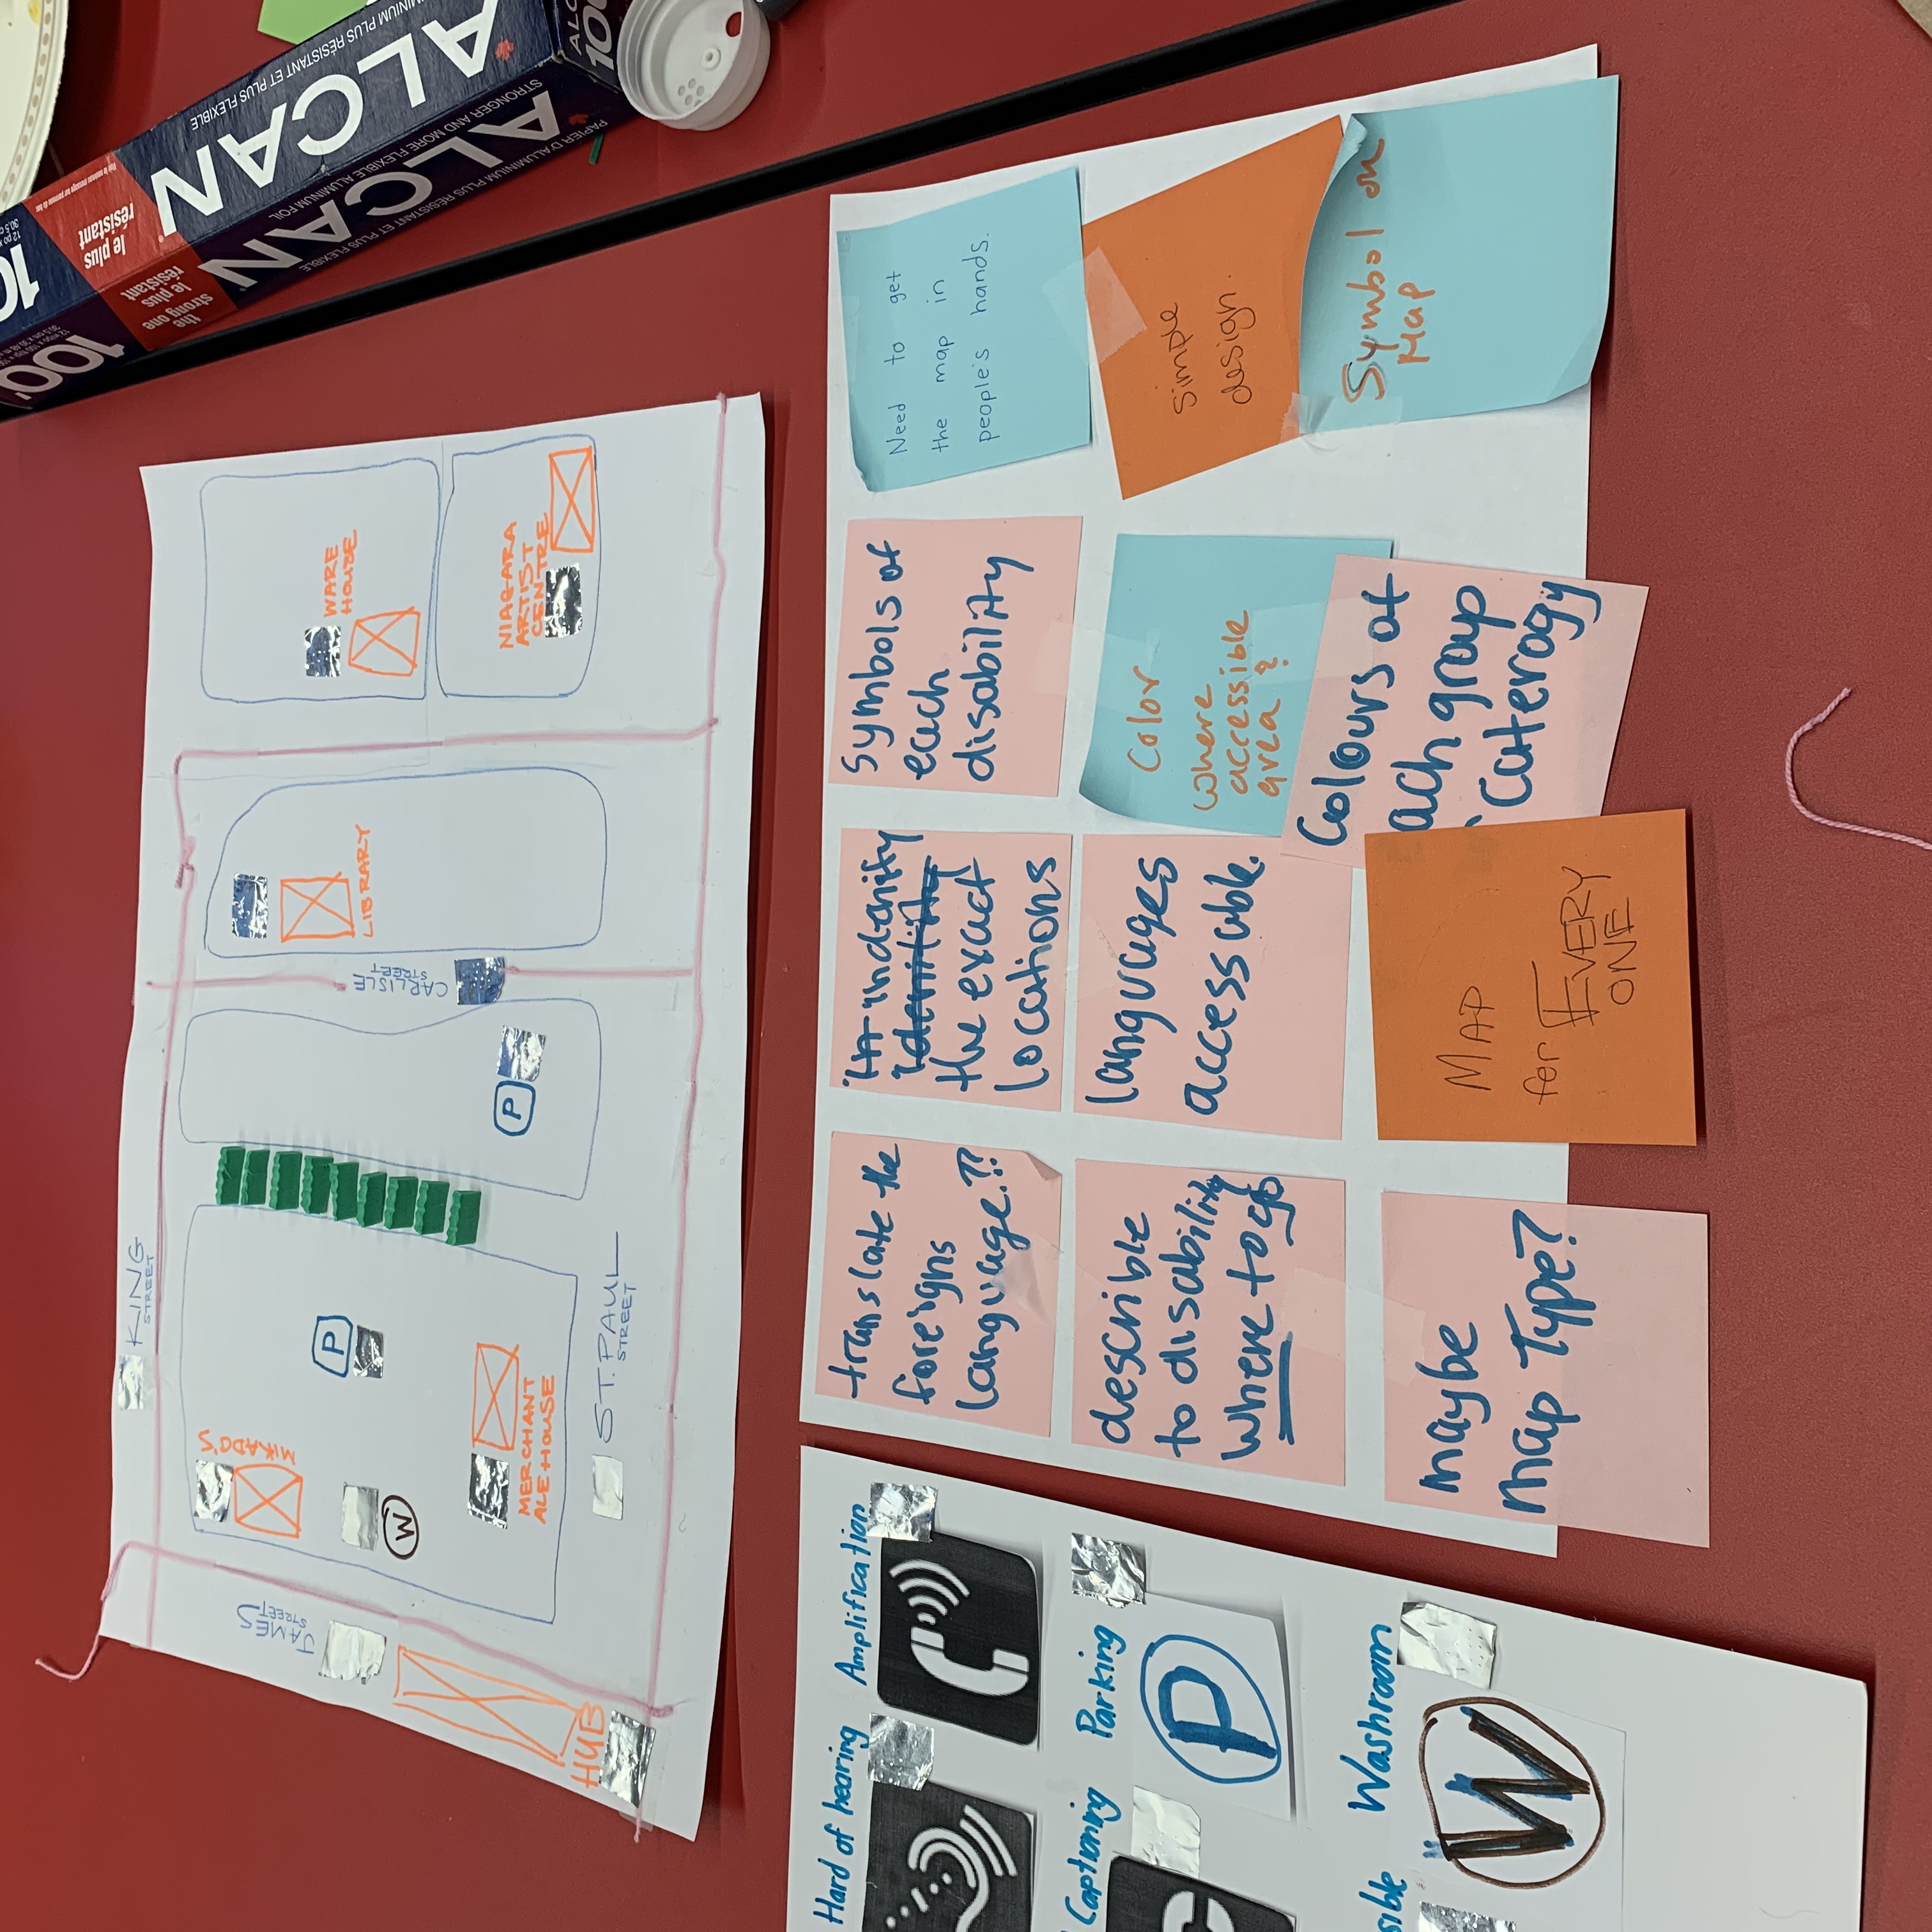 KING
STREET
JAMES
STREET
MIKADO'S
P
W
CARLISLE
STREET
LIBRARY
WARE
HOUSE
MERCHANT
ALEHOUSE
P
NIAGARA
ARTIST
CENTRE
HUB
ST. PAUL
STREET
100'
the
strong one
le plus
résistant
le plus
résistant
ALCAN
STRONGER AND MORE FLEXIBLE ALUMINUM FOIL
PAPIER D'ALUMINIUM PLUS RÉSISTANT ET PLUS FLEXIBLE
ALCAN
Hard of hearing
Amplification
Captioning
Parking
P
sible
Washroom
W
translate the
foreigns
language.??
indenify
the exact
locations
Symbols of
each
disability
Need to get
the map in
people's hands.
describle
to disability
where to go
languages
accessable.
Color
where
accessible
area ?
simple
design.
maybe
map Type?
MAP
for EVERY
ONE
Colours of
ach group
Caterogy
Symbol on
Map